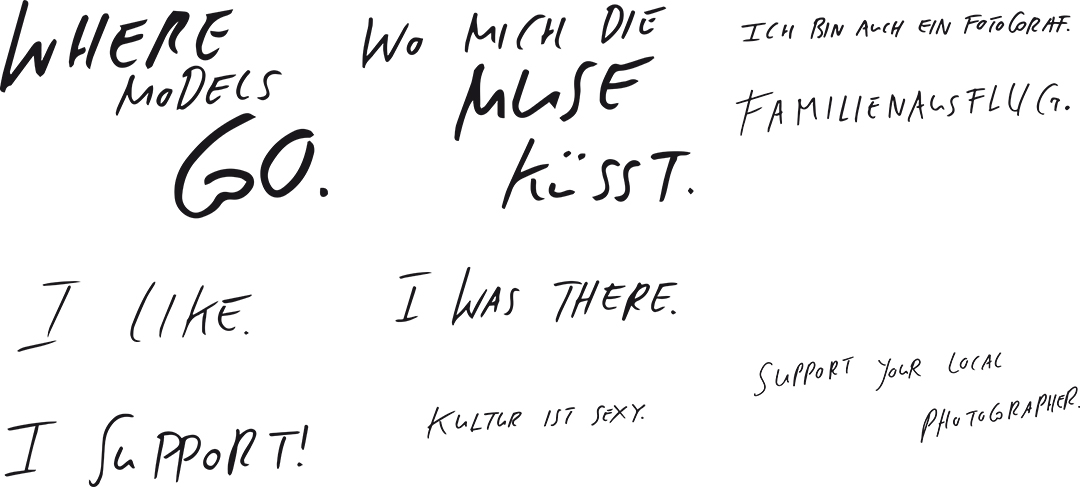 WHERE
MODELS
GO.
WO MICH DIE
MUSE
KÜSST.
ICH BIN AUCH EIN FOTOGRAF.
FAMILIENAUSFLUG.
I LIKE.
I WAS THERE.
I SUPPORT!
KULTUR IST SEXY.
SUPPORT YOUR LOCAL
PHOTOGRAPHER.